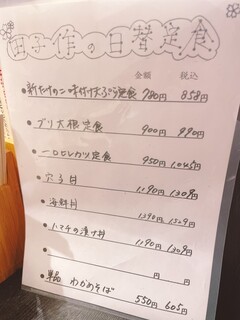 田子作の日替定食
金額 税込
●新たけの二味付天ぷら定食 780円 858円
●ブリ大根定食 900円 990円
●一口ヒレカツ定食 950円 1,045円
●穴子丼 1190円 1,309円
●海鮮丼 1390円 1,529円
●ハマチの漬け丼 1190円 1,309円
● 円 円
●単品 わかめそば 550円 605円